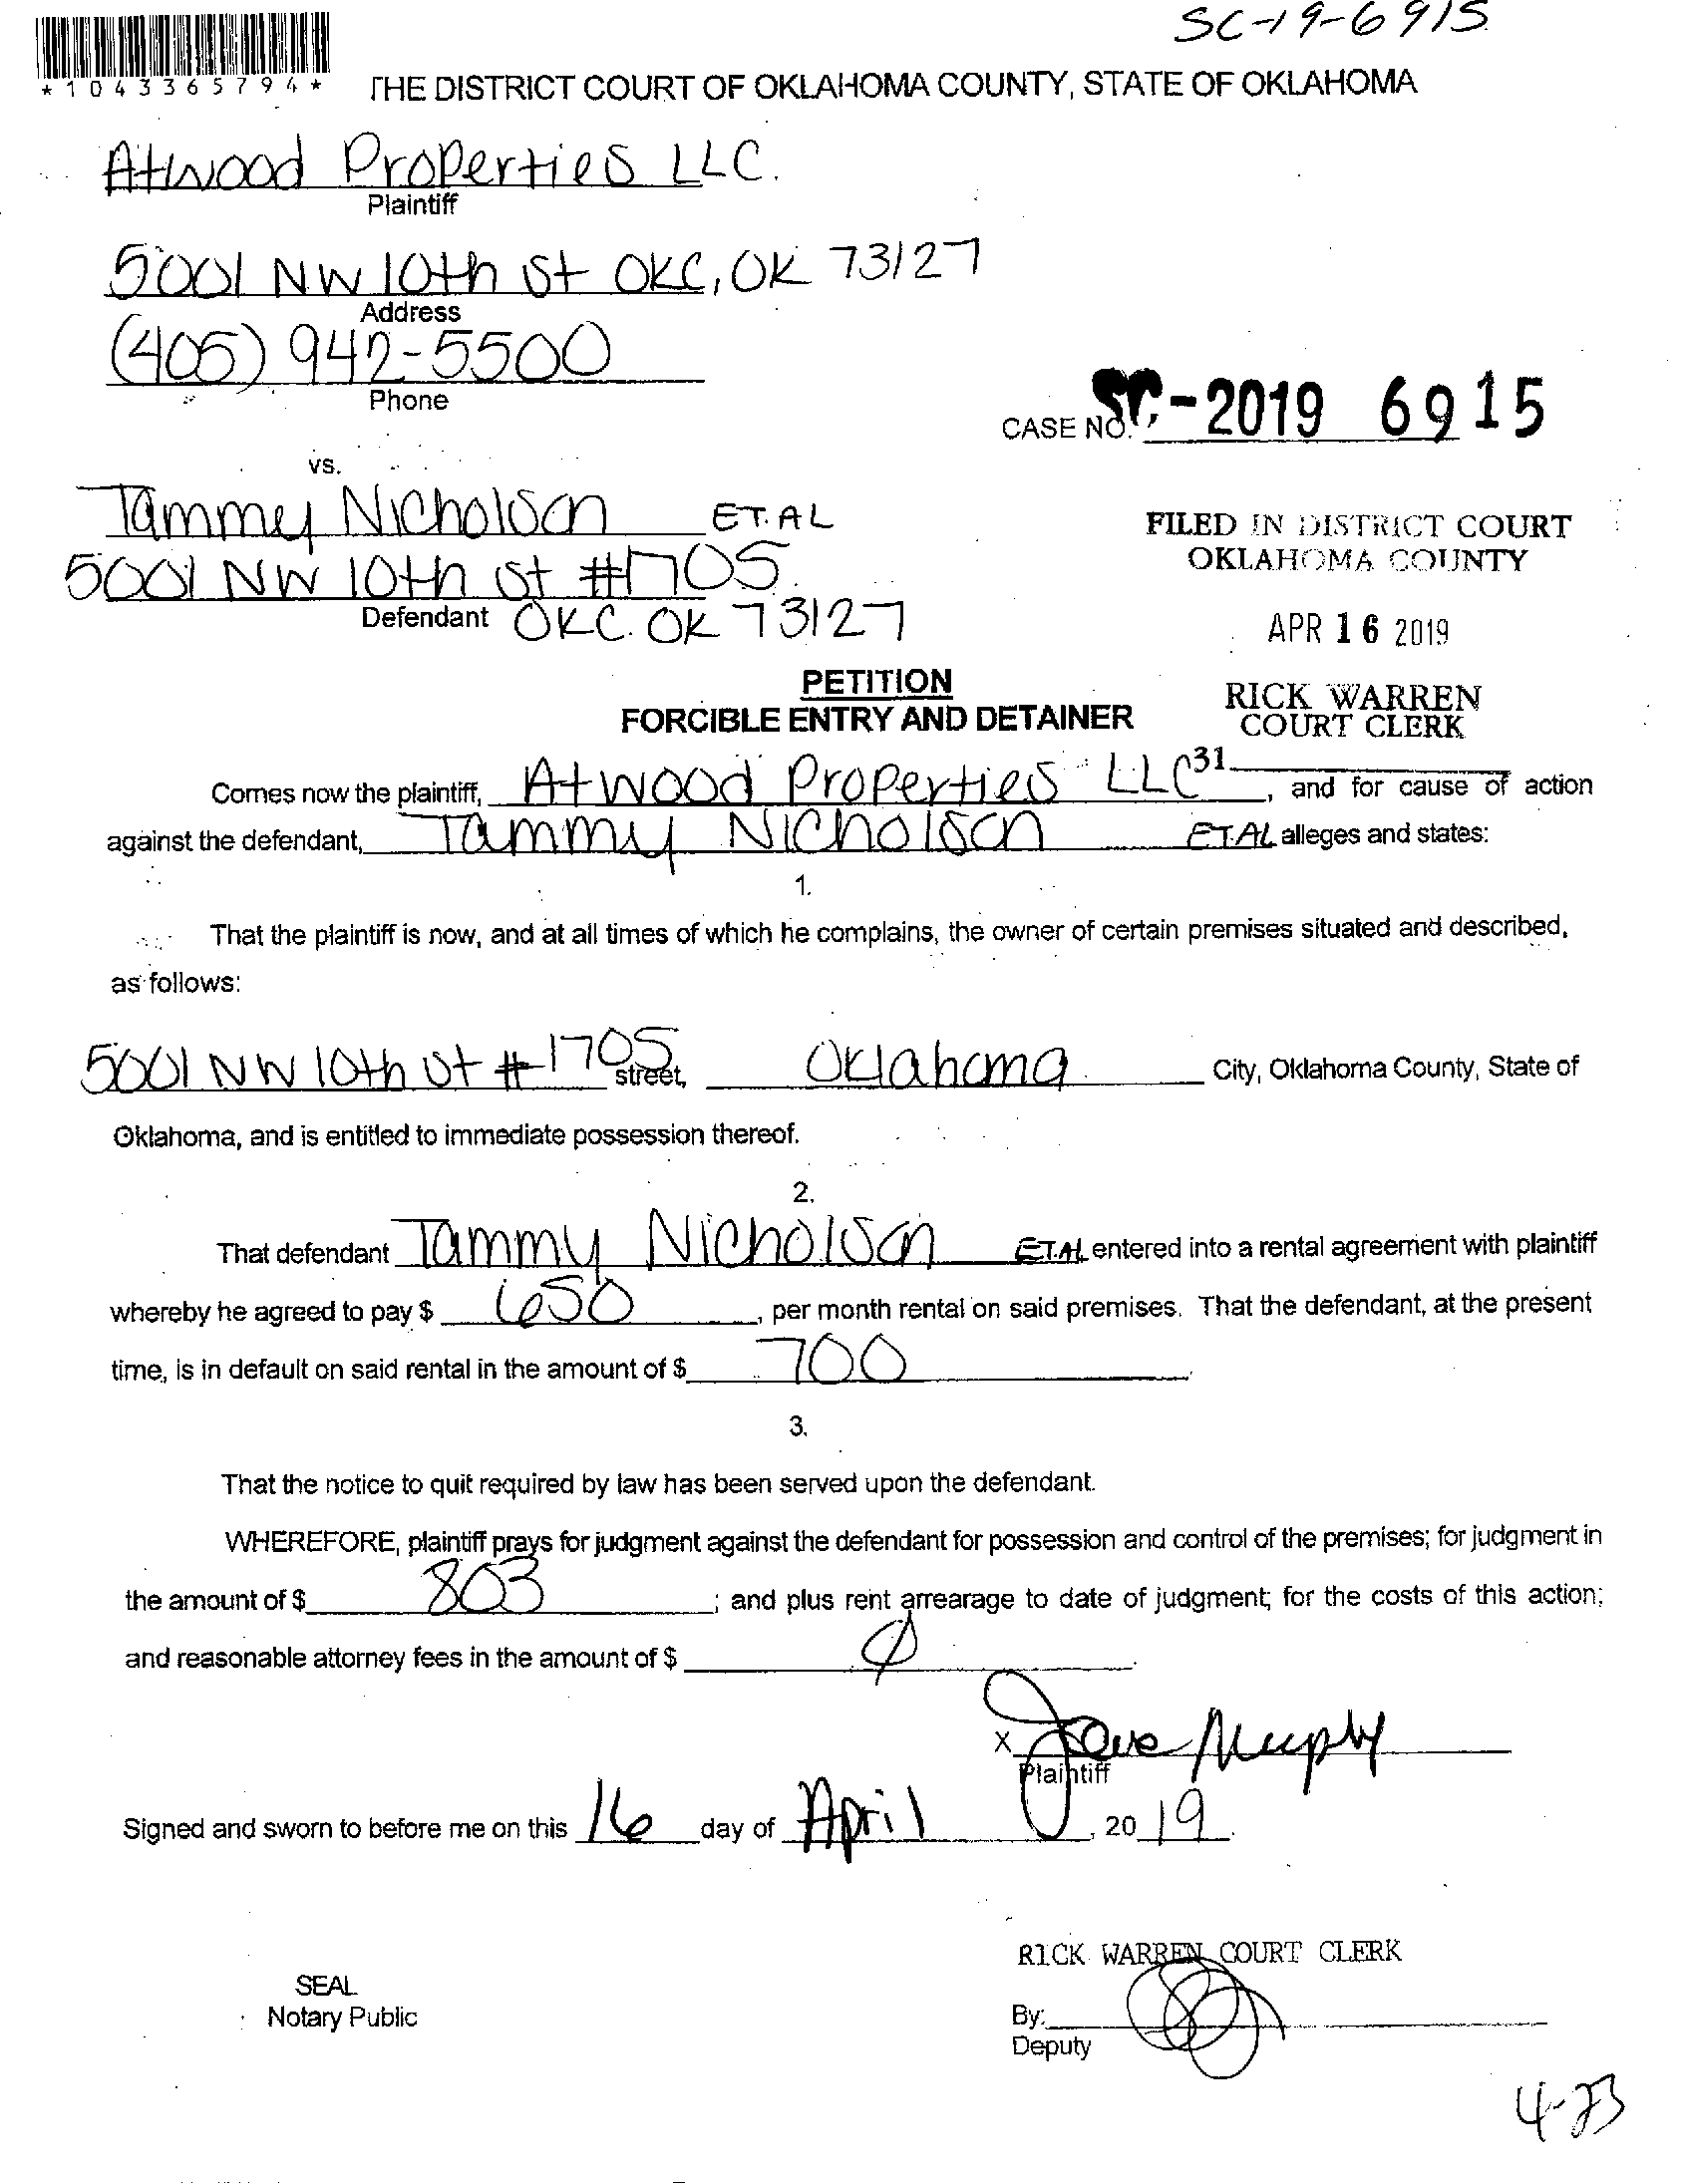 SC-19-6915
*1043365794*
THE DISTRICT COURT OF OKLAHOMA COUNTY, STATE OF OKLAHOMA
Atwood Properties LLC.
Plaintiff
5001 NW 10th St OKC, OK 73127
Address
(405) 942-5500
Phone
CASE NO. SC-2019 6915
vs.
Tammy Nicholson ET. AL
5001 NW 10th St #1705
Defendant OKC. OK 73127
FILED IN DISTRICT COURT
OKLAHOMA COUNTY
APR 16 2019
RICK WARREN
COURT CLERK
31
PETITION
FORCIBLE ENTRY AND DETAINER
Comes now the plaintiff, Atwood Properties LLC, and for cause of action
against the defendant, Tammy Nicholson ET. AL alleges and states:
1.
That the plaintiff is now, and at all times of which he complains, the owner of certain premises situated and described,
as follows:
5001 NW 10th St #1705 street, Oklahoma City, Oklahoma County, State of
Oklahoma, and is entitled to immediate possession thereof.
2.
That defendant Tammy Nicholson ET. AL entered into a rental agreement with plaintiff
whereby he agreed to pay $ 650, per month rental on said premises. That the defendant, at the present
time, is in default on said rental in the amount of $ 700.
3.
That the notice to quit required by law has been served upon the defendant.
WHEREFORE, plaintiff prays for judgment against the defendant for possession and control of the premises; for judgment in
the amount of $ 803; and plus rent arrearage to date of judgment; for the costs of this action;
and reasonable attorney fees in the amount of $ Ø.
X Murphy
Plaintiff
Signed and sworn to before me on this 16 day of April, 2019.
RICK WARREN COURT CLERK
SEAL
Notary Public
By:
Deputy
4-23